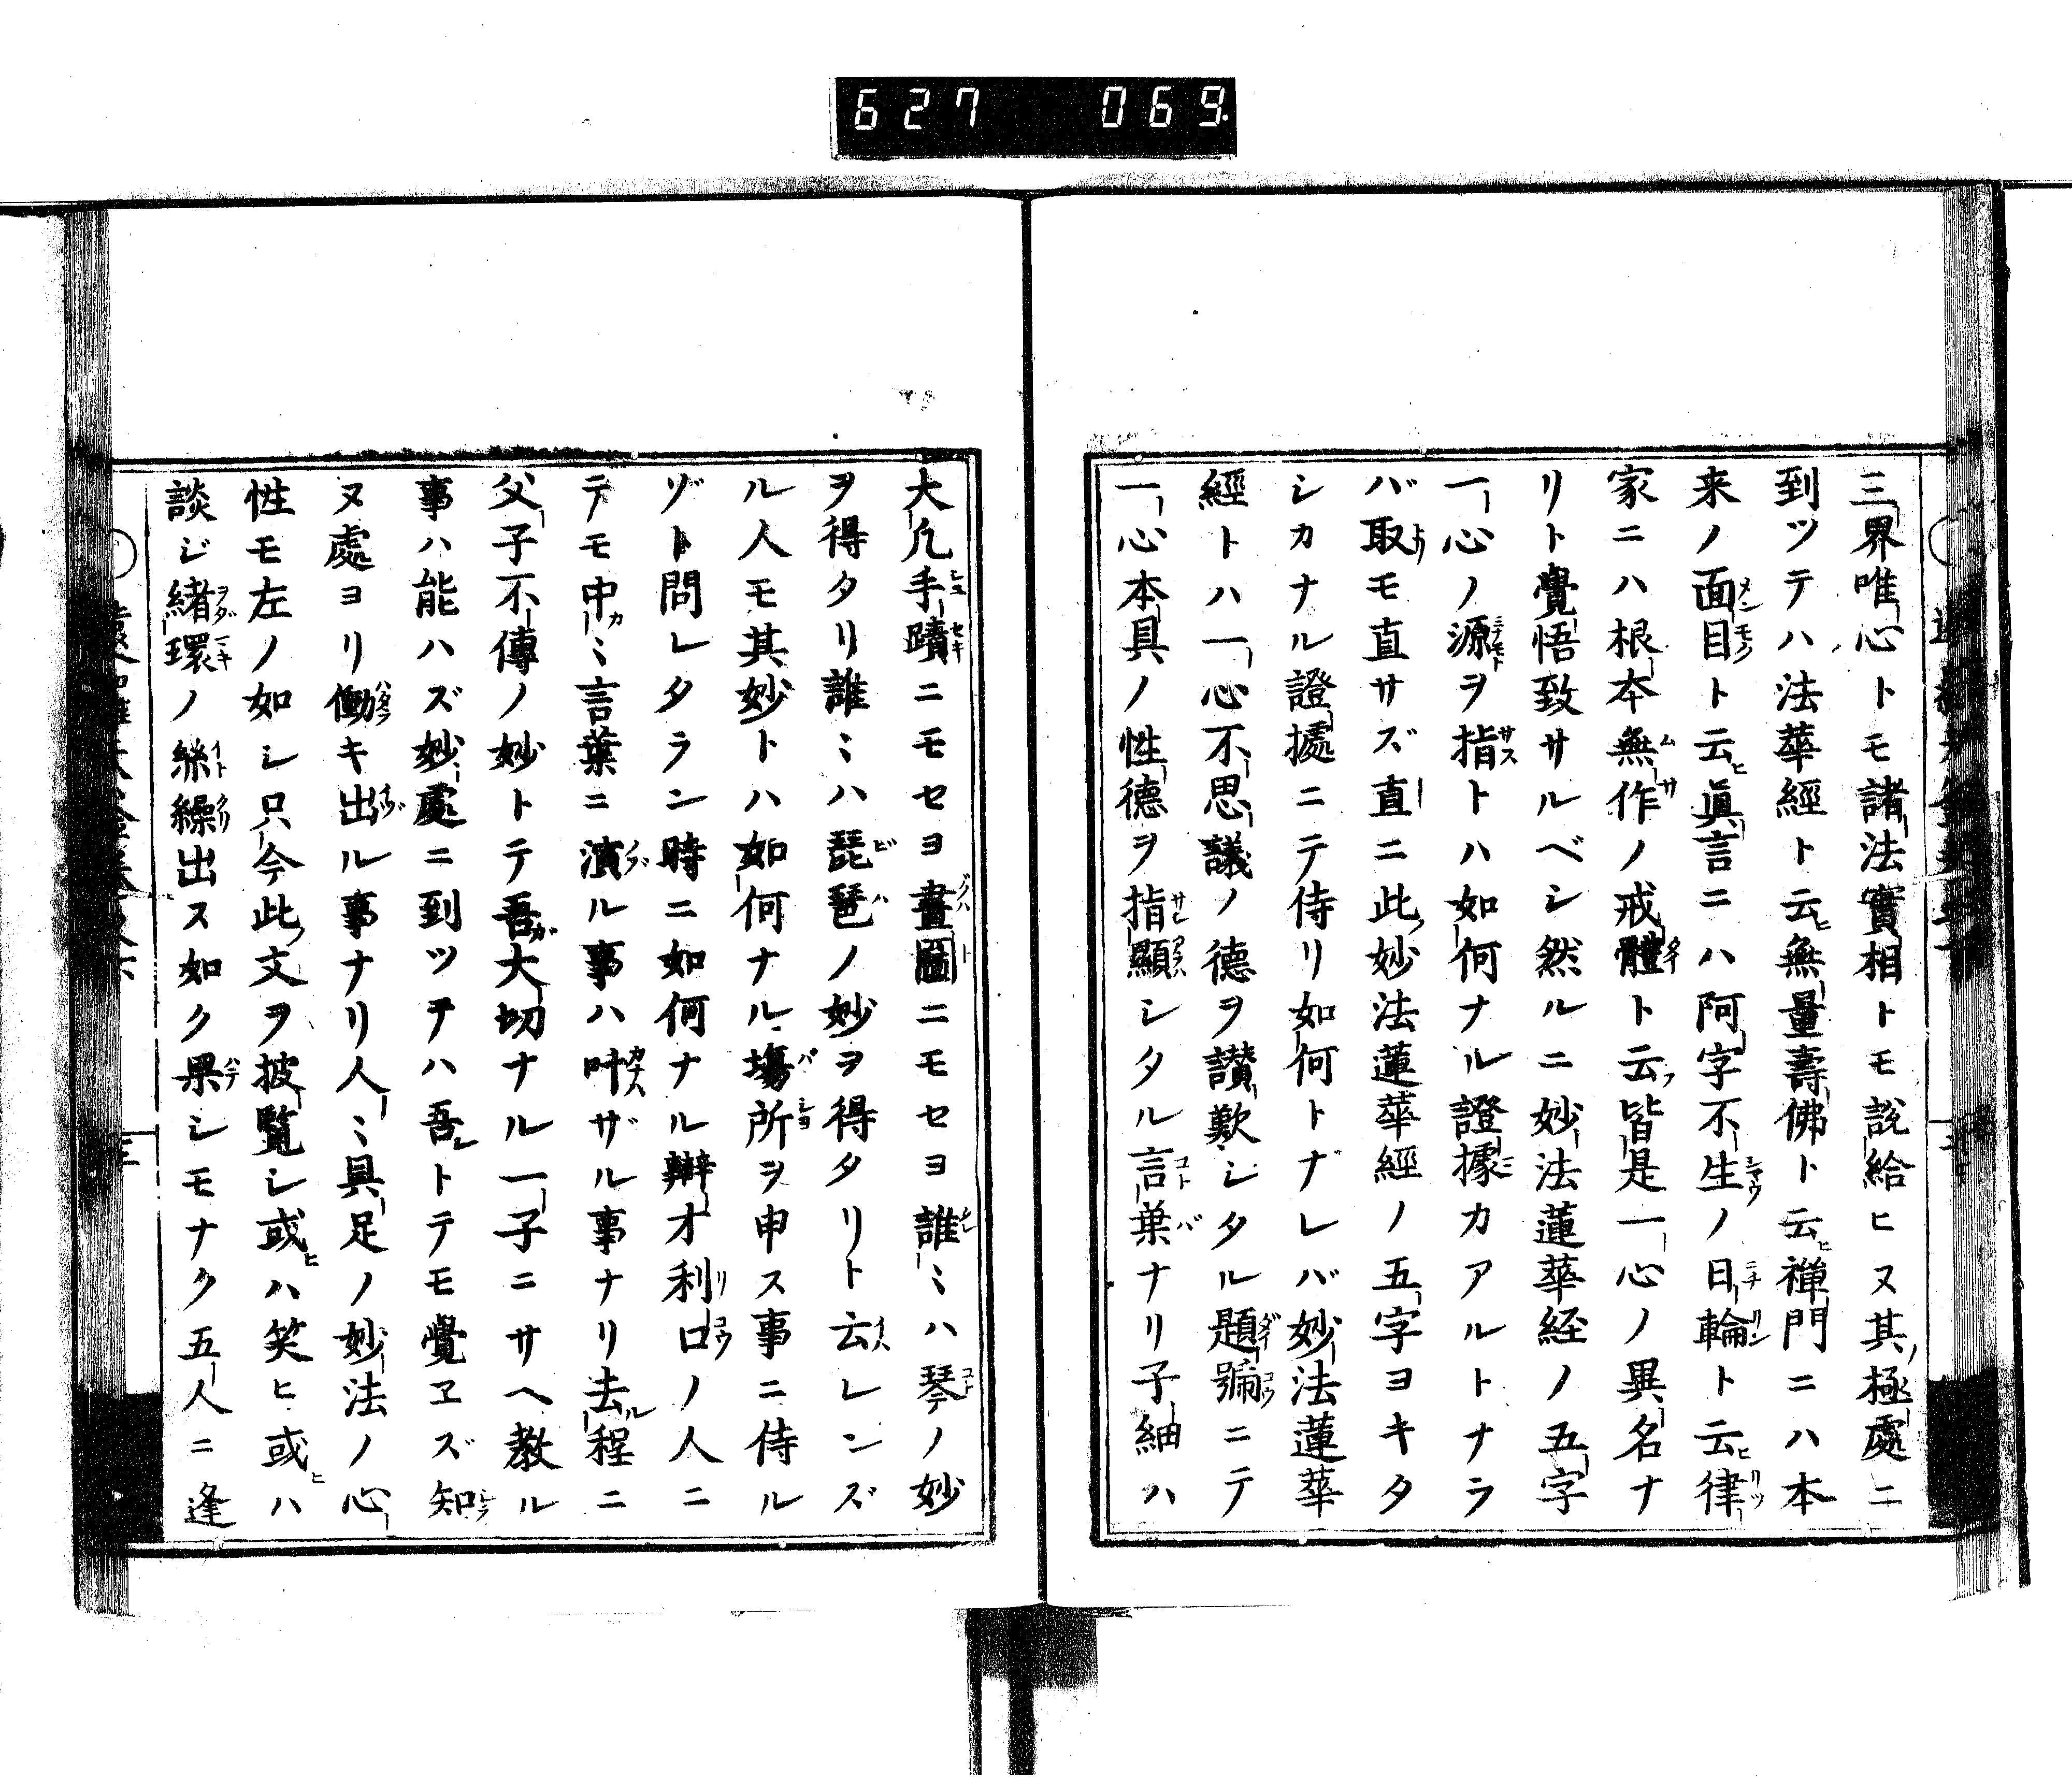 627 069
三界唯心トモ諸法實相トモ説給ヒヌ其極處ニ
到ツテハ法華經ト云無量壽佛ト云禅門ニハ本
来ノ面目ト云眞言ニハ阿字不生ノ日輪ト云律
家ニハ根本無作ノ戒體ト云皆是一心ノ異名ナ
リト覺悟致サルベシ然ルニ妙法蓮華経ノ五字
一心ノ源ヲ指トハ如何ナル證據カアルトナラ
バ取モ直サズ直ニ此妙法蓮華經ノ五字ヨキタ
シカナル證據ニテ侍リ如何トナレバ妙法蓮華
經トハ一心不思議ノ德ヲ讃歎シタル題號ニテ
一心本具ノ性德ヲ指顯シタル言葉ナリ子細ハ
大凢手蹟ニモセヨ畫圖ニモセヨ誰〻ハ琴ノ妙
ヲ得タリ誰〻ハ琵琶ノ妙ヲ得タリト云レンズ
ル人モ其妙トハ如何ナル塲所ヲ申ス事ニ侍ル
ゾト問レタラン時ニ如何ナル辯才利口ノ人ニ
テモ中〻言葉ニ演ル事ハ叶ザル事ナリ去程ニ
父子不傳ノ妙トテ吾大切ナル一子ニサヘ教ル
事ハ能ハズ妙處ニ到ツヲハ吾トテモ覺ヱズ知
ヌ處ヨリ働キ出ル事ナリ人〻具足ノ妙法ノ心
性モ左ノ如シ只今此文ヲ披覧シ或ハ笑ヒ或ハ
談ジ緒環ノ絲繰出ス如ク果シモナク五人ニ逢